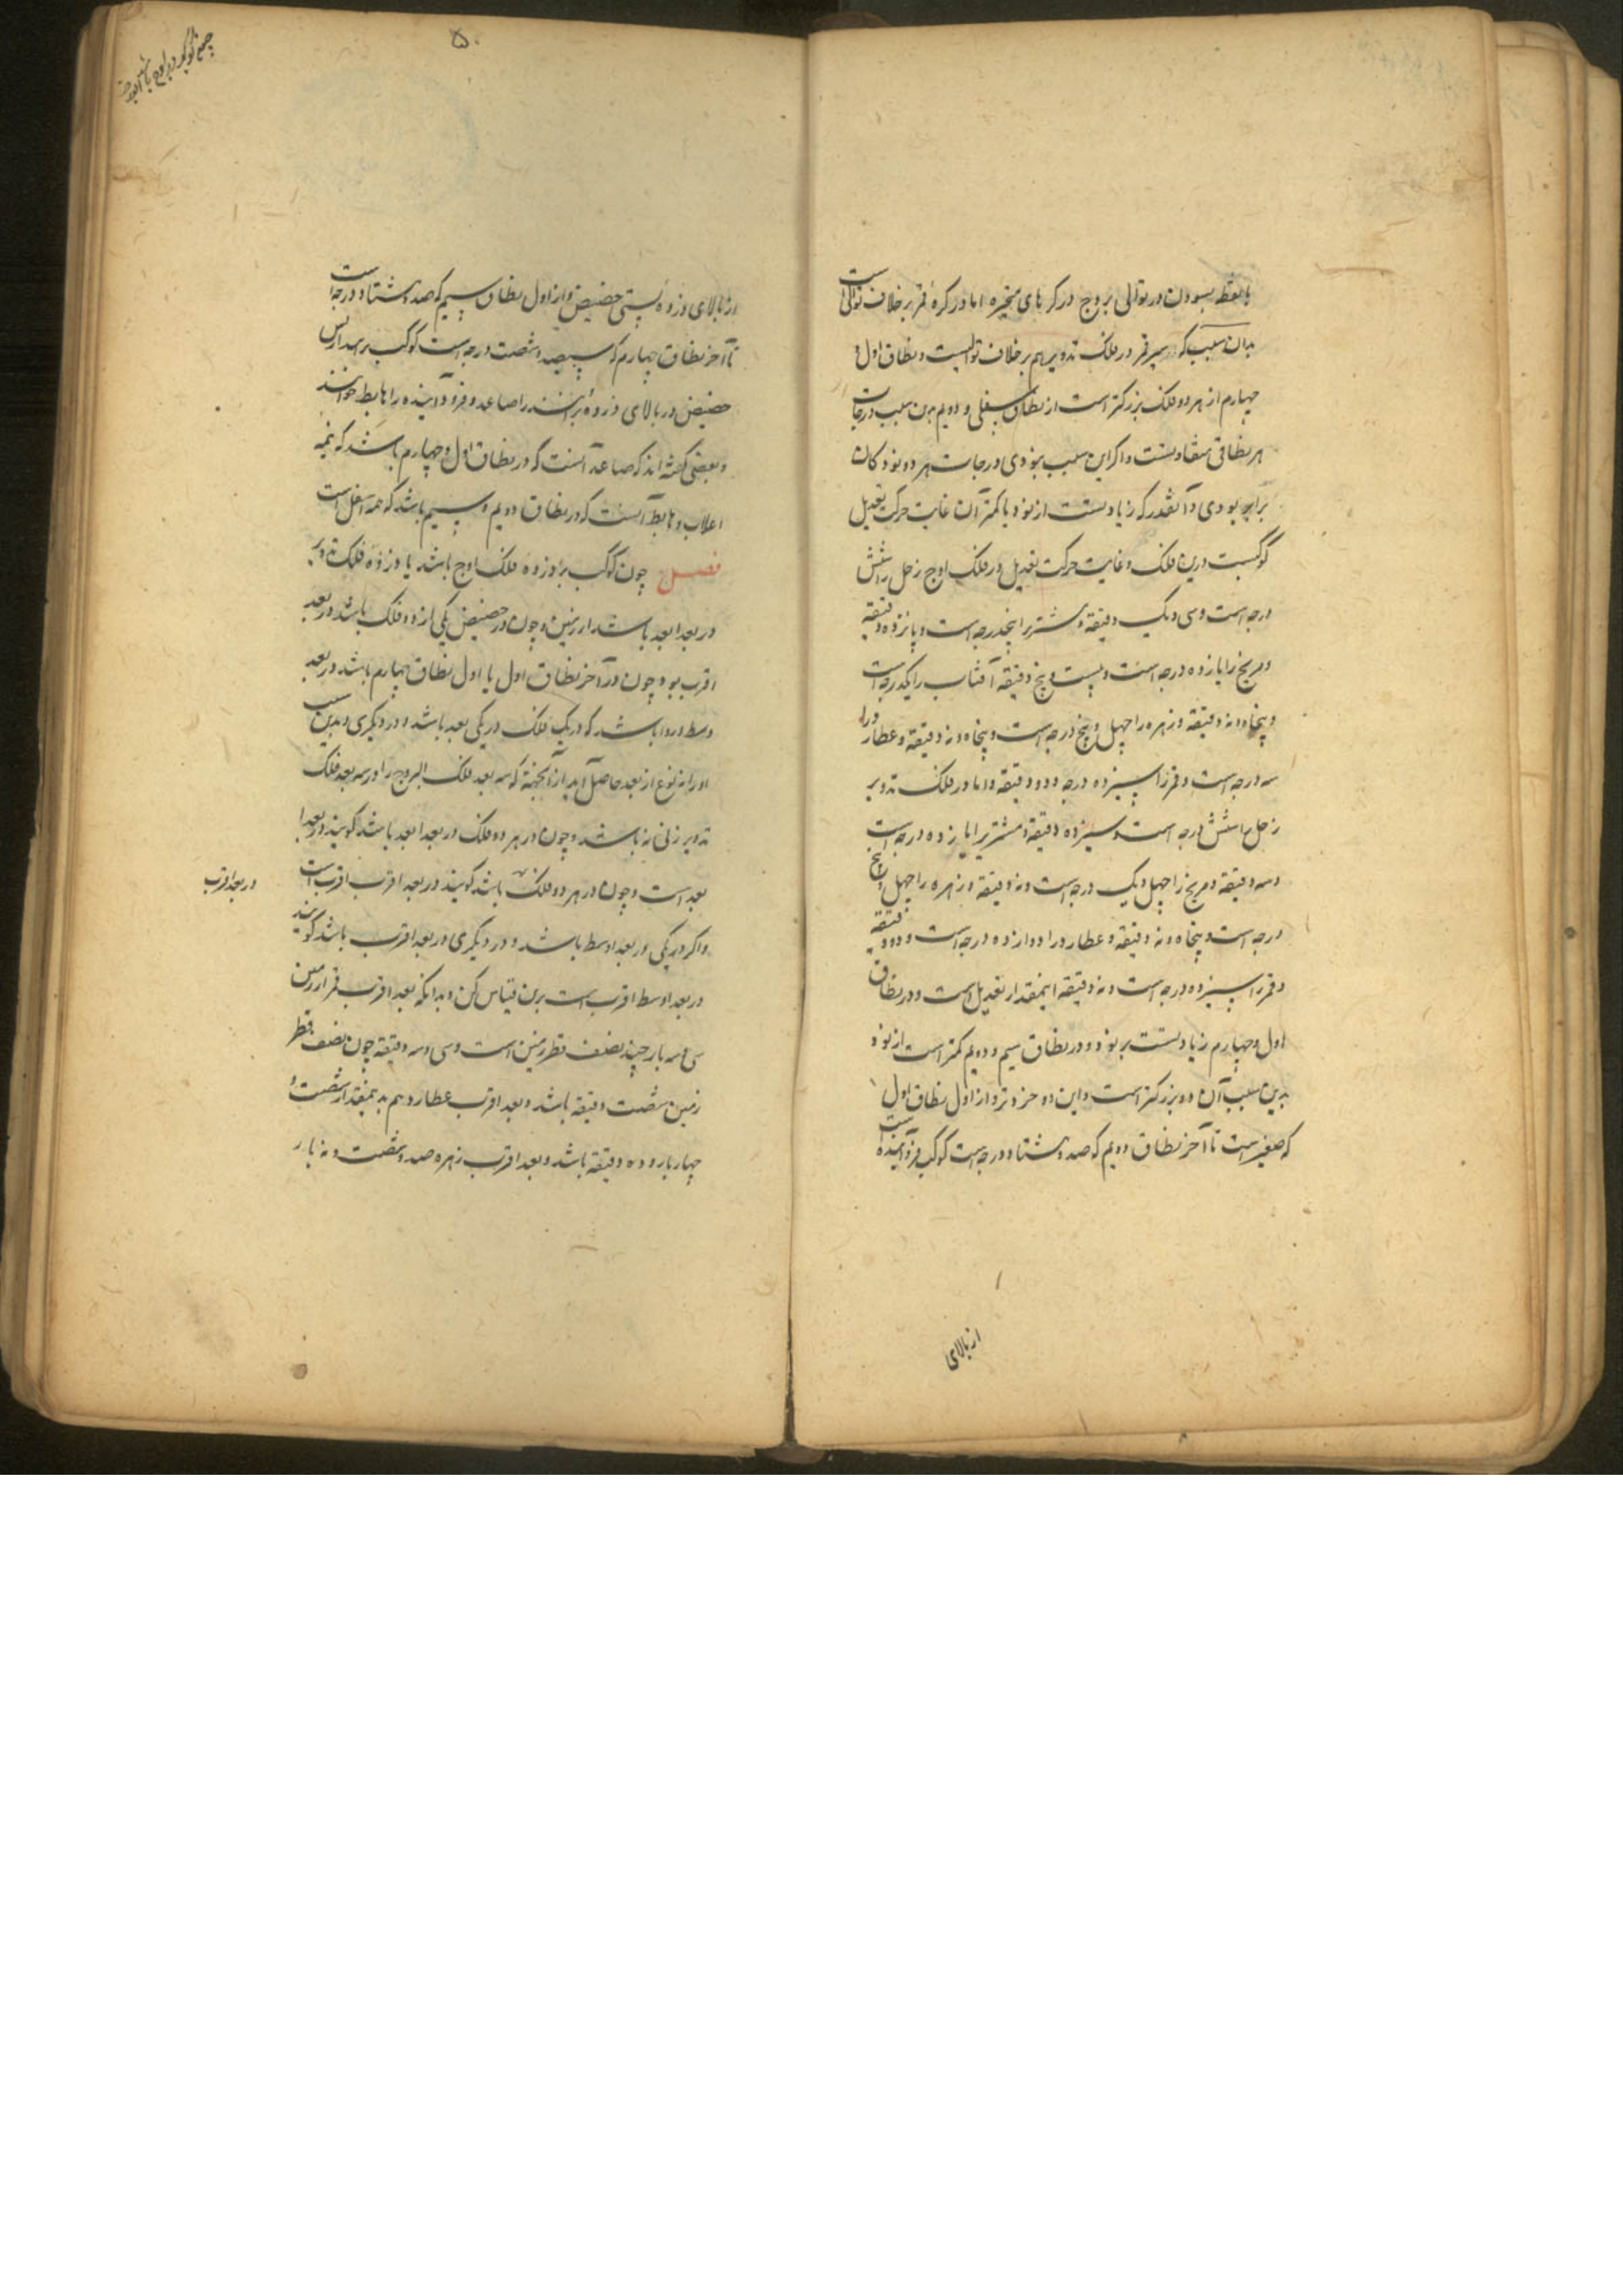 با نقطه بسودن در توالی بروج در کرهای متحیره اما در کرهٔ قمر بر خلاف توالی است
بدان سبب که سیر قمر در فلک تدویر هم بر خلاف توالیست و نطاق اول و
چهارم از هر دو فلک بزرکتر است از نطاق سفلی و دویم بدین سبب درجات
هر نطاقی متفاوتست و اکر این سبب نبودی درجات هر دو نود کان
برابر بودی و آنقدر که زیادتست از نود یا کمتر آن غایت حرکت تعدیل
کوکبست درین فلک و غایت حرکت تعدیل در فلک اوج زحل را شش
درجه است و سی و یک دقیقه و مشتریرا پنجدرجه است و پانزده دقیقه
و مریخ را یازده درجه است و بیست و پنج دقیقه آفتاب را یکدرجه است
و پنجاه و نه دقیقه و زهره را چهل و پنج درجه است و پنجاه و نه دقیقه و عطارد را
سه درجه است و قمر را سیزده درجه و دو دقیقه و اما در فلک تدویر
زحل را شش درجه است و سیزده دقیقه و مشتریرا یازده درجه است
و سه دقیقه و مریخ را چهل و یک درجه است و نه دقیقه و زهره را چهل و پنج
درجه است و پنجاه و نه دقیقه و عطارد را دوازده درجه است و دو دقیقه
و قمر را سیزده درجه است و نه دقیقه اینمقدار تعدیل است و در نطاق
اول و چهارم زیادتست بر نود و در نطاق سیم و دویم کمتر است از نود
بدین سبب آن دو بزرکتر است و این دو خردتر و از اول نطاق اول
که صفر است تا آخر نطاق دویم که صد و هشتاد درجه است کوکب فرود آینده است
از بالای
۵۰
از بالای ذروه پستی حضیض و از اول نطاق سیم که صد و هشتاد درجه است
تا آخر نطاق چهارم که سیصد و شصت درجه است کوکب بر آید از پس
حضیض در بالای ذروه بر آینده را صاعد و فرود آینده را هابط خوانند
و بعضی کفته اند که صاعد آنست که در نطاق اول و چهارم باشد که نیمه
اعلاب و هابط آنست که در نطاق دویم و سیم باشد که نیمه اسفل است
فصل چون کوکب بر ذروه فلک اوج باشد یا ذروه فلک تدویر
در بعد ابعد باشد از زمین و چون در حضیض یکی از دو فلک باشد در بعد
اقرب بود و چون در آخر نطاق اول یا اول نطاق چهارم باشد در بعد
وسط و روا باشد که در یک فلک در یکی بعد باشد و در دیکری و بدین سبب
او را نه نوع از بعد حاصل آید از آنجهته که سه بعد فلک البروج را در سه بعد فلک
تدویر زنی نه باشد و چون در هر دو فلک در بعد ابعد باشد کویند در بعد ا
بعد است و چون در هر دو فلک باشد کویند در بعد اقرب اقرب است
در بعد اقرب
و اکر در یکی در بعد اوسط باشد و در دیکری در بعد اقرب باشد کویند
در بعد اوسط اقرب است برین قیاس کن و بدانکه بعد اقرب قمر از زمین
سی و سه بار چند نصف قطر زمین است و سی و سه دقیقه چون نصف قطر
زمین شصت دقیقه باشد و بعد اقرب عطارد هم بدینمقدار شصت و
چهار بار و ده دقیقه باشد و بعد اقرب زهره صد و شصت و نه بار